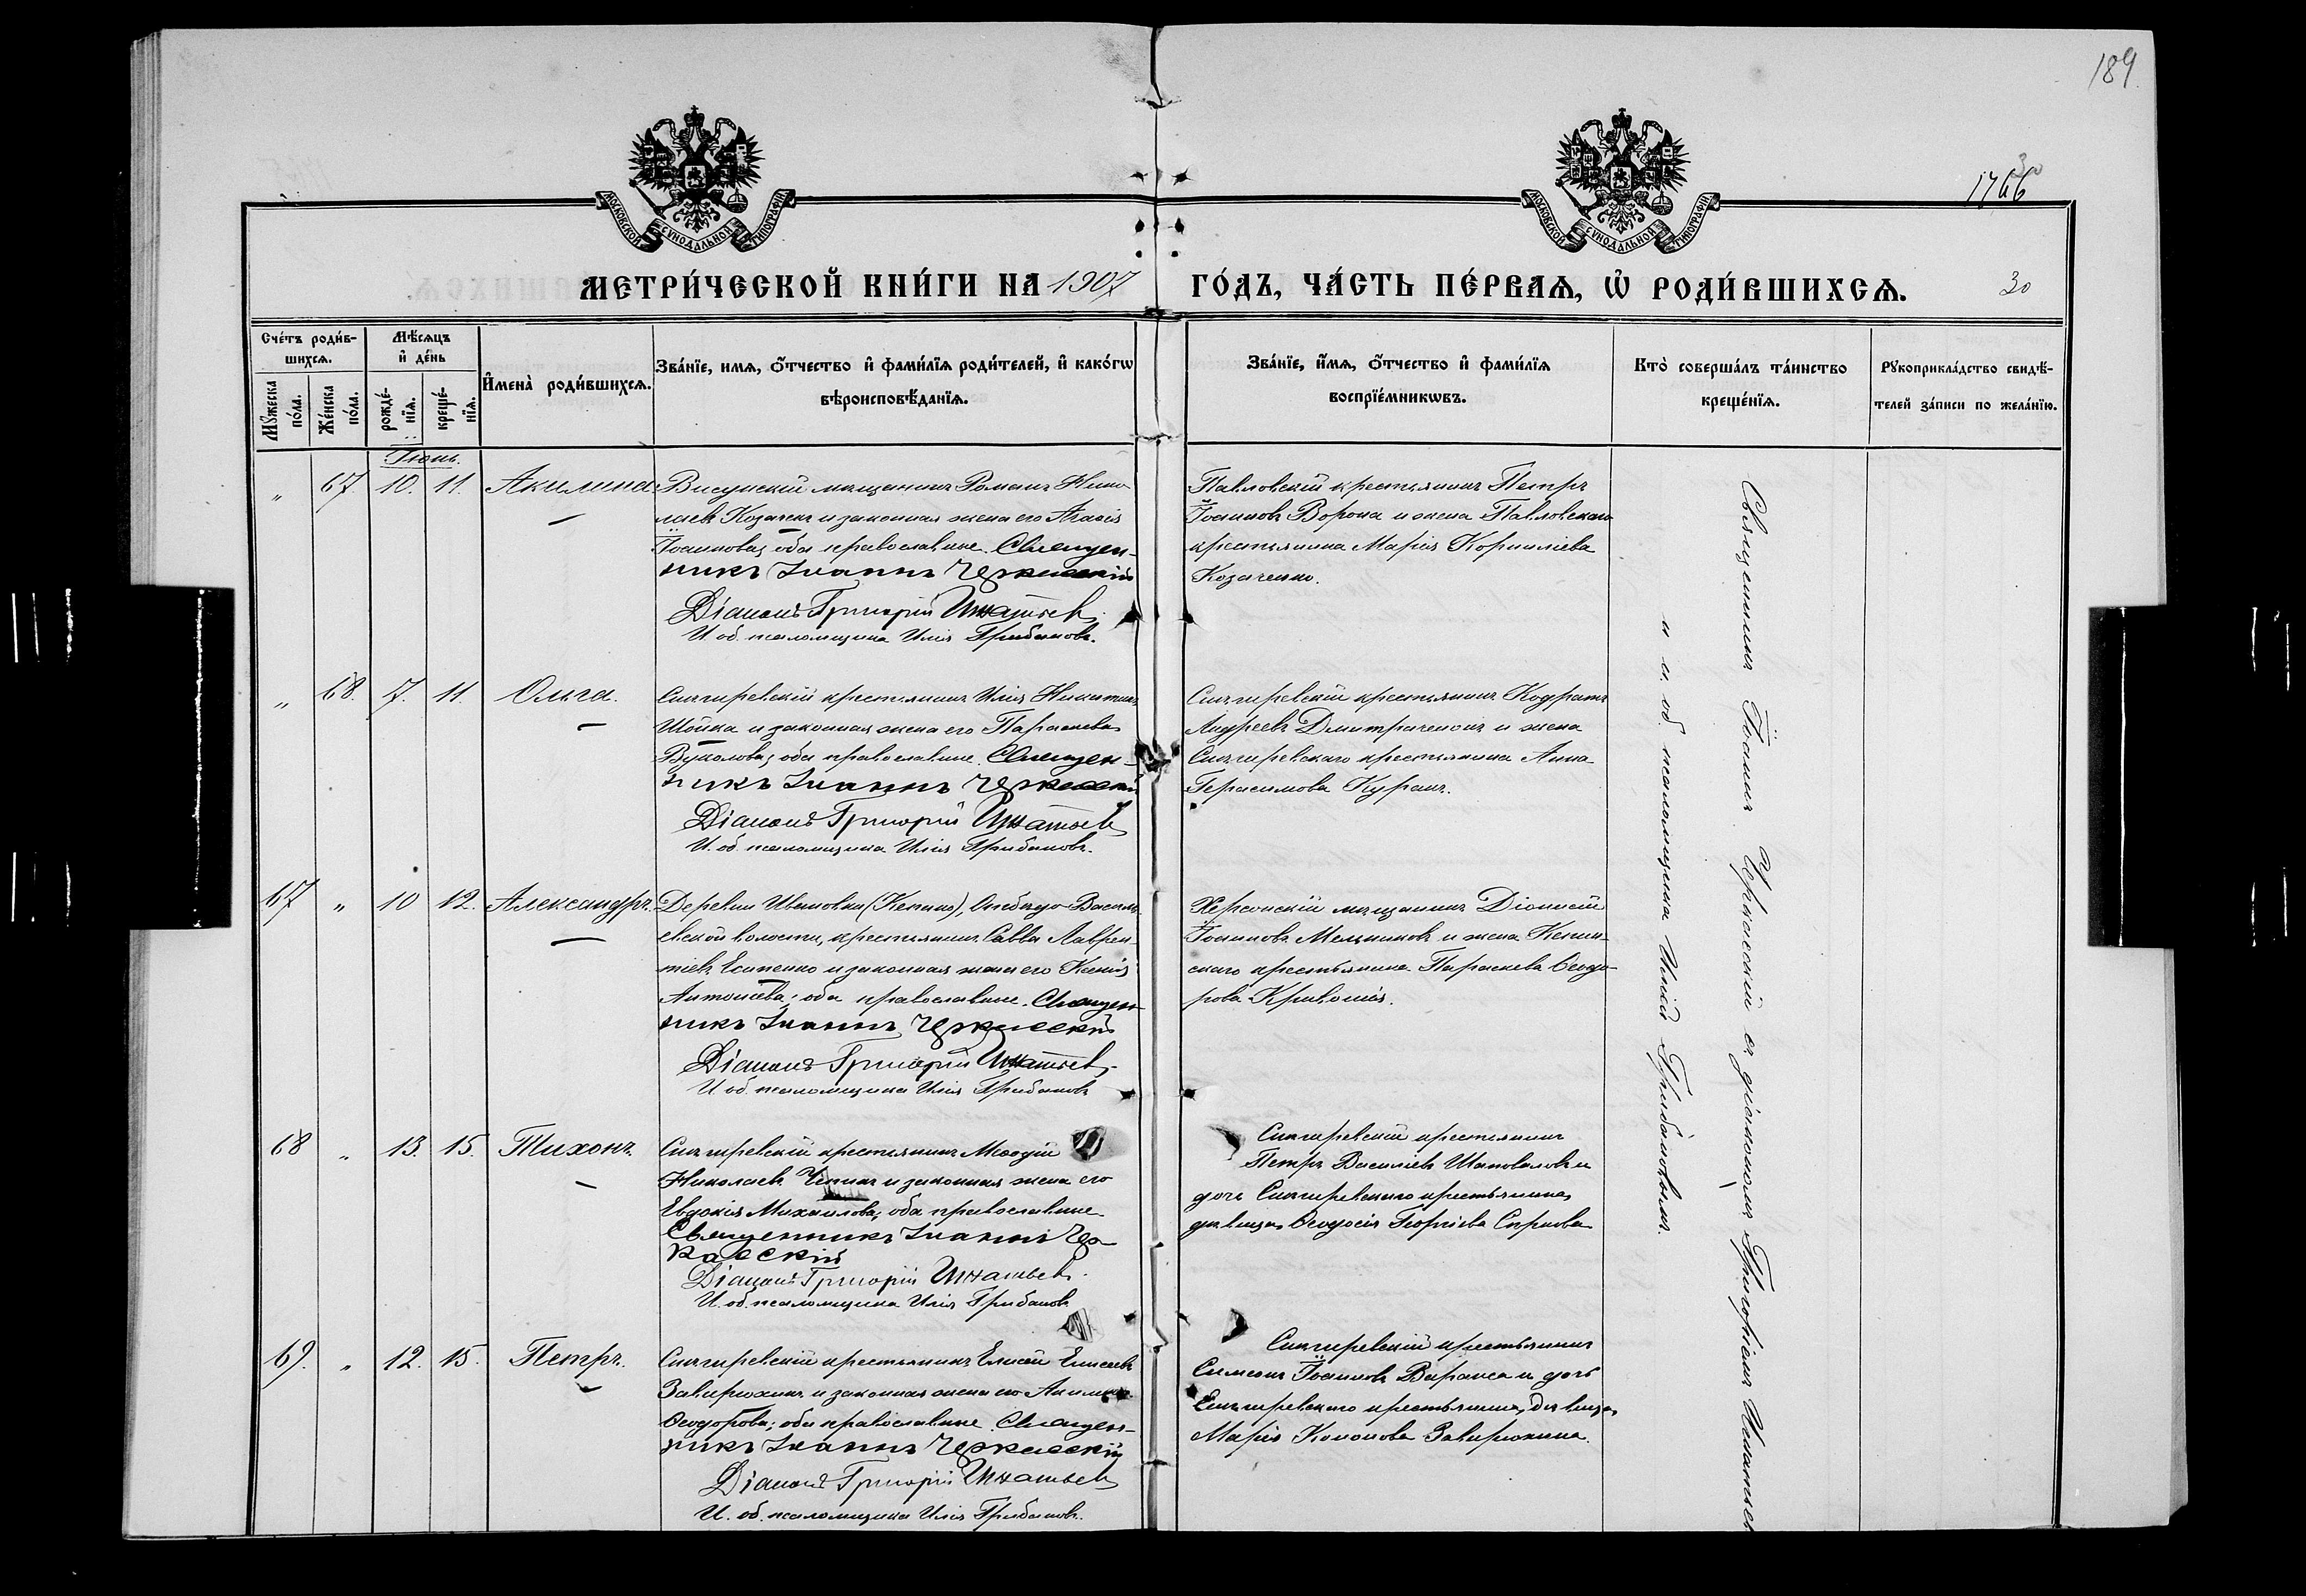 189
30
1766
МОСКОВСКОЙ СѴНОДАЛЬНОЙ ТИПОГРАФІИ
МОСКОВСКОЙ СѴНОДАЛЬНОЙ ТИПОГРАФІИ
МЕТРИ́ЧЕСКОЙ КНИ́ГИ НА 1907 ГО́ДЪ, ЧА́СТЬ ПЕ́РВАѦ, Ѡ҆ РОДИ́ВШИХСѦ. 30
Сче́тъ роди́в-
шихсѧ.
Мꙋ́жеска по́ла.
Же́нска по́ла.
Мѣ́сѧцъ
и҆ де́нь
рожде́-
нїѧ.
креще́-
нїѧ.
И҆мена̀ роди́вшихсѧ.
Зва́нїе, имѧ, ѻ҆́тчество и҆ фами́лїѧ роди́телей, и҆ како́гѡ
вѣроисповѣ́данїѧ.
Зва́нїе, и҆́мѧ, ѻ҆́тчество и҆ фами́лїѧ
воспрїе́мникѡвъ.
Кто̀ соверша́лъ та́инство
креще́нїѧ.
Рꙋкоприкла́дство свидѣ́-
телей за́писи по жела́нїю.
Іюнь.
„ 67. 10. 11. Акилина
Висунскій мѣщанинъ Романъ Нико-
лаевъ Козаченъ и законная жена его Агаѳія
Іоаннова, оба православные. Священ-
никъ Іоаннъ Черкасскій
Діаконъ Григорій Игнатьев
И. об. псаломщика Илія Грибановъ.
Павловскій крестьянинъ Петръ
Іоанновъ Ворона и жена Павловскаго
крестьянина Марія Корниліева
Козаченко.
„ 68. 7. 11. Ольга.
Снигиревскій крестьянинъ Илія Никитинъ
Шойка и законная жена его Параскева
Вуколова, оба православные. Священ-
никъ Іоаннъ Черкасскій
Діаконъ Григорій Игнатьев
И. об. псаломщика Илія Грибановъ.
Снигиревскій крестьянинъ Кодратъ
Андреевъ Дмитраченокъ и жена
Снигиревскаго крестьянина Анна
Герасимова Куранъ.
67 „ 10 12. Александръ.
Деревни Ивановки (Кепино), Онебидо-Василь-
евской волости, крестьянинъ Савва Лаврен-
тіевъ Есипенко и законная жена его Ксенія
Антоніева; оба православные. Священ-
никъ Іоаннъ Черкасскій
Діаконъ Григорій Игнатьев
И. об. псаломщика Илія Грибановъ
Херсонскій мѣщанинъ Діонисій
Іоанновъ Мельниковъ и жена Кепин-
скаго крестьянина Параскева Ѳеодо-
рова Кривошія.
68 „ 13. 15. Тихонъ.
Снигиревскій крестьянинъ Меѳодій
Николаевъ и законная жена его
Евдокія Михаилова; оба православные.
Священникъ Іоаннъ Чер-
касскій
Діаконъ Григорій Игнатьев.
И. об. псаломщика Илія Грибановъ
Снигиревскій крестьянинъ
Петръ Василіевъ Шаповаловъ и
дочь Снигиревскаго крестьянина,
дѣвица Ѳеодосія Георгіева Сиркова
69. „ 12. 15. Петръ.
Снигиревскій крестьянинъ Елисей Елисеевъ
Завирюхинъ и законная жена его Акилина
Ѳеодорова; оба православные. Священ-
никъ Іоаннъ Черкасскій
Діаконъ Григорій Игнатьев
И. об. псаломщика Илія Грибановъ.
Снигиревскій крестьянинъ
Симеонъ Іоанновъ Вараnca и дочь
Снигиревскаго крестьянина, дѣвица
Марія Кононова Завирюхина.
Священникъ Іоаннъ Черкасскій съ діакономъ Григоріемъ Игнатьев
и и. об. псаломщика Иліей Грибановымъ.